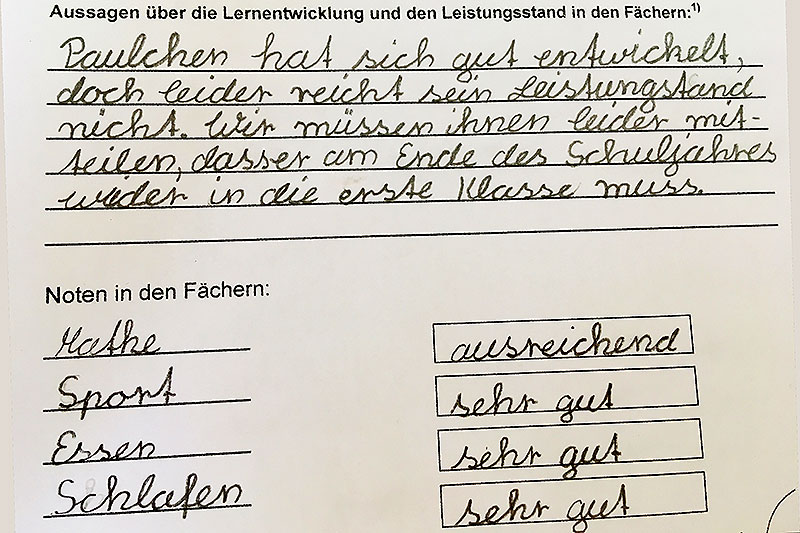 Aussagen über die Lernentwicklung und den Leistungsstand in den Fächern:1)
Paulchen hat sich gut entwickelt,
doch leider reicht sein Leistungstand
nicht. Wir müssen ihnen leider mit-
teilen, dasser am Ende des Schuljahres
wieder in die erste Klasse muss.
Noten in den Fächern:
Mathe ausreichend
Sport sehr gut
Essen sehr gut
Schlafen sehr gut